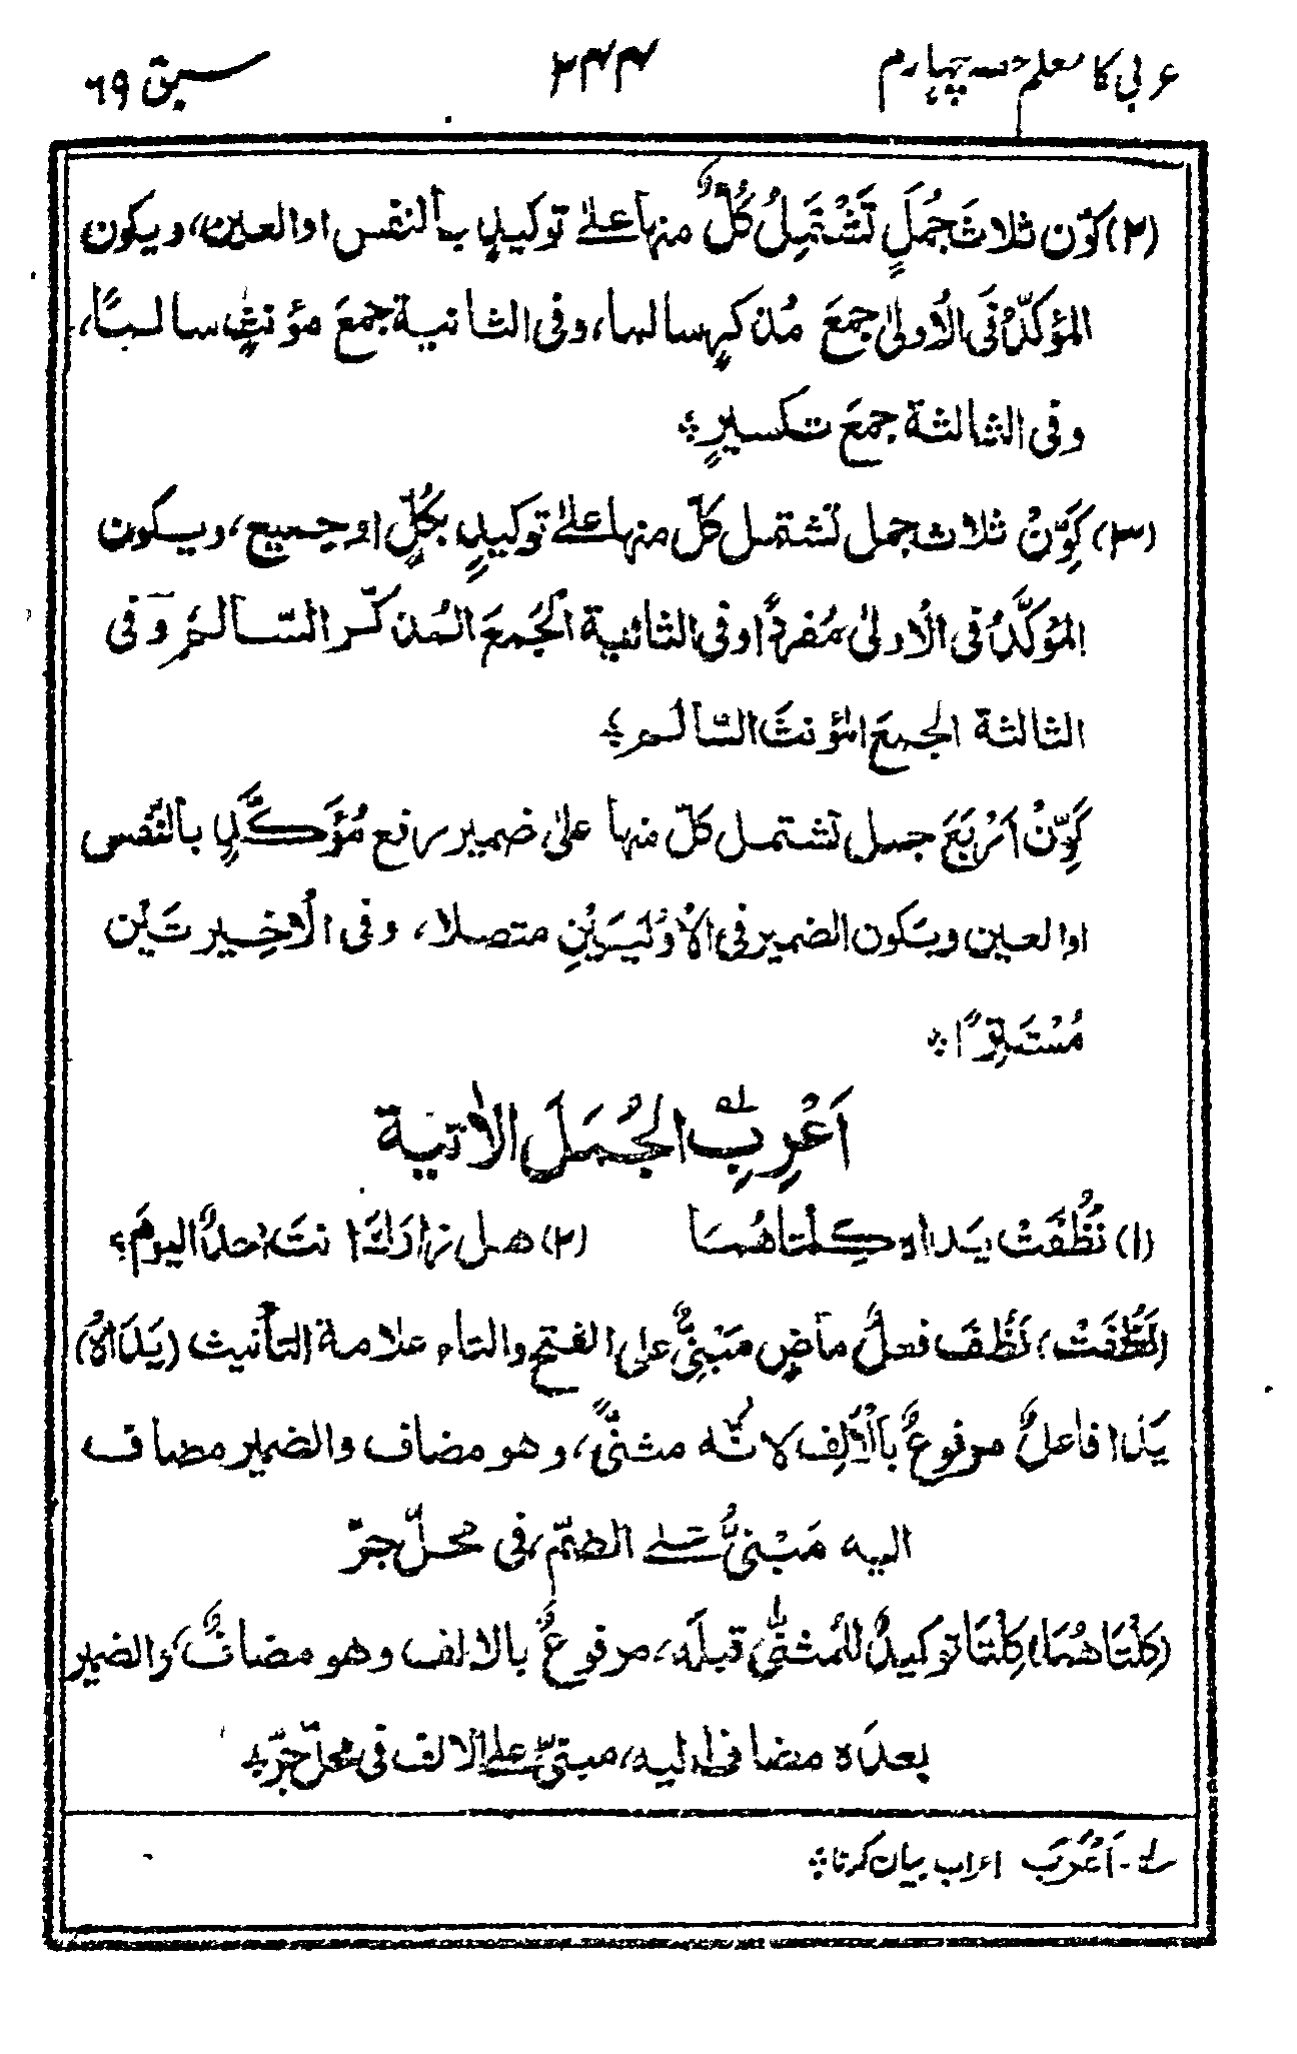 عربی کا معلم حصہ چہارم ۲۴۴ سبق ۶۹
(۲) کَوِّن ثلاثَ جُمَلٍ تَشْتَمِلُ کُلٌّ منها علیٰ توکیدٍ بالنفس او العین، ویکون
المؤکَّدُ فی الاُولیٰ جمعَ مُذکرٍ سالما، وفی الثانیة جمعَ مؤنثٍ سالمًا،
وفی الثالثة جمعَ تکسیرٍ ؞
(۳) کَوِّنْ ثلاث جمل تَشتمل کلّ منها علیٰ توکیدٍ بکُلٍّ او جمیع، ویکون
المُؤکَّدُ فی الاُولیٰ مُفردًا وفی الثانیة الجُمعَ المُذکّر السّالمَ وَفی
الثالثة الجمعَ المؤنثَ السّالم ؞
کَوِّنْ اَرْبَعَ جمل تشتمل کلّ منها علیٰ ضمیر رفع مُؤَکَّدٍ بالنّفس
او العین ویَکون الضمیر فی الاُوْلَیَیْنِ متصلا، وفی الاَخِیرتَیْن
مُسْتَتِرًا ؞
اَعْرِبِ ؎۱ الجُمَلَ الاٰتیة
(۱) نَظُفَتْ یَداه کِلْتاهُمَا (۲) هل زارَكَ اَنتَ احدٌ الیومَ؟
(نَظُفَتْ) نَظُفَ فعلٌ ماضٍ مَبْنِیٌّ علی الفتح والتاء علامة التأنیث (یَدَاهُ)
یَدا فاعلٌ مرفوعٌ بالْاَلِف لانّه مثنًّی، وهو مضاف والضمیر مضاف
الیه مَبْنیٌّ علی الضمّ، فی محلّ جرّ
(کِلْتَاهُمَا) کِلْتَا توکیدٌ للمُثنّٰی قبلَه، مرفوعٌ بالالف وهو مضافٌ، والضمیر
بعدَه مضاف الیه، مبنیٌّ علی الالف فی محلّ جرّ ؞
؎۱ - اَعْرَبَ اعراب بیان کرنا ؞